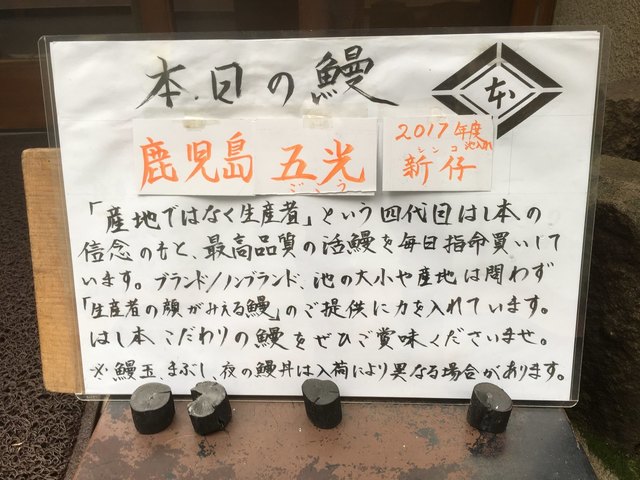 本日の鰻
本
鹿児島 五光
ごこう
2017年度
池入れ
シンコ
新仔
「産地ではなく生産者」という四代目はし本の
信念のもと、最高品質の活鰻を毎日指命買いして
います。ブランド/ノンブランド、池の大小や産地は問わず
「生産者の顔がみえる鰻」のご提供に力を入れています。
はし本こだわりの鰻をぜひご賞味くださいませ。
※鰻玉、まぶし、夜の鰻丼は入荷により異なる場合があります。